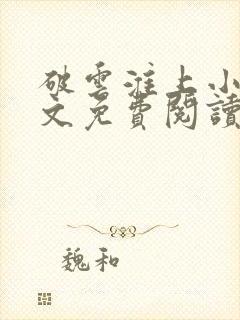 破雲淮上小
文免費閱讀
魏和